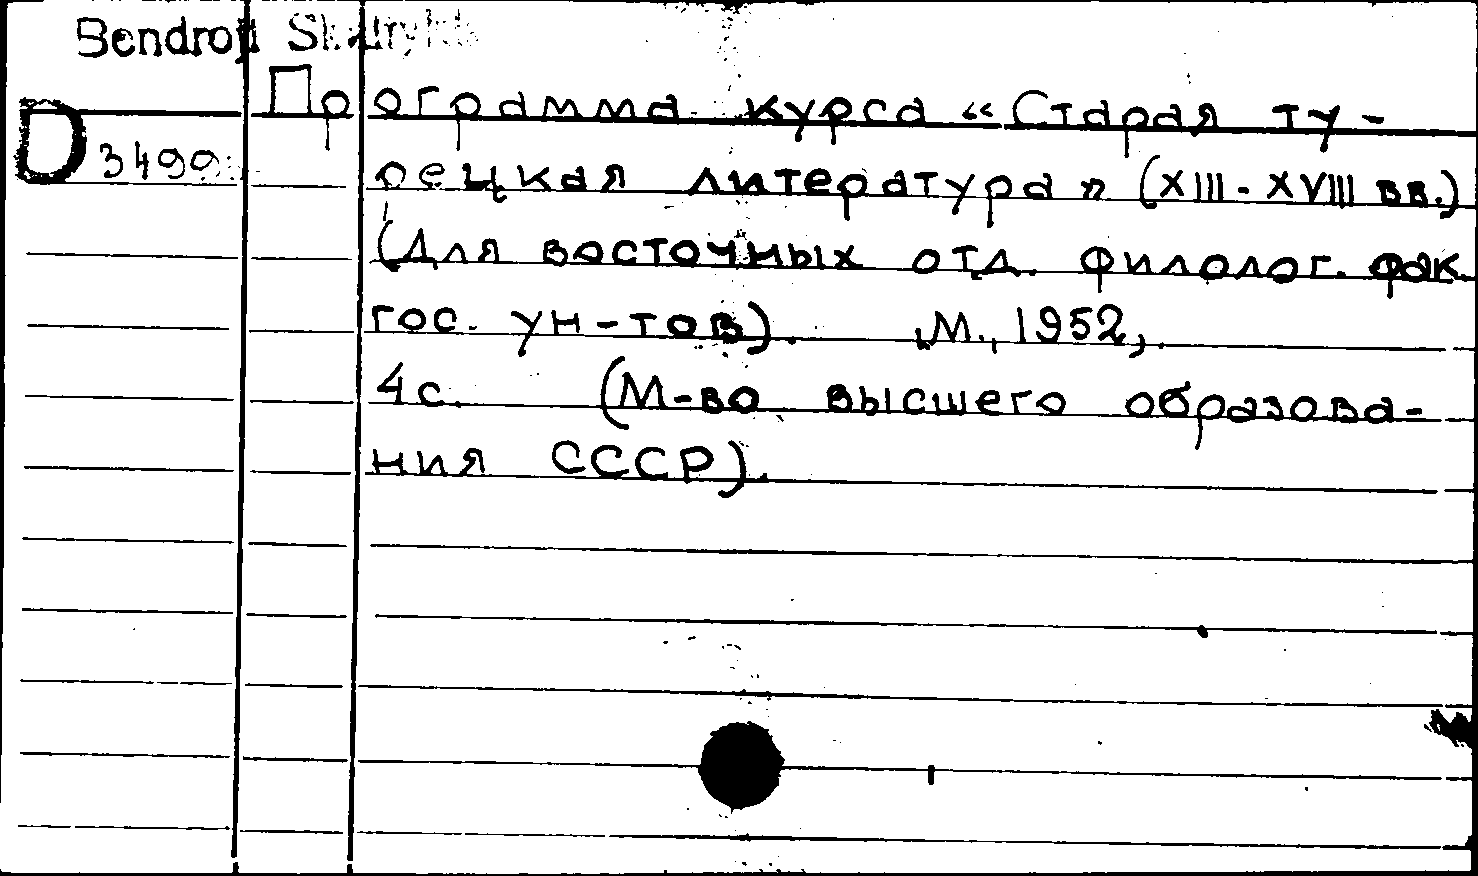 Bendroji Skaitykla
Программа курса „Старая ту-
D 3499
рецкая литература" (XIII-XVIII вв.)
(Для восточных отд. филолог. фак.
гос. ун-тов). М., 1952,
4с. (М-во высшего образова-
ния СССР).